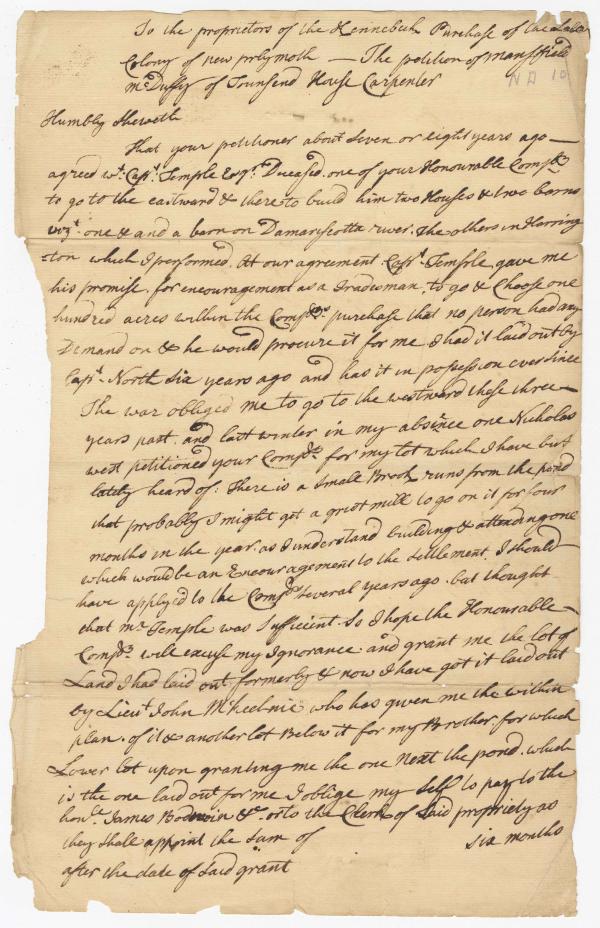 To the proprietors of the Kennebeck Purchase of the Late
Colony of new plymoth — The petition of mansfield
Mc Duffy of Tounsend House Carpenter
ND 10
Humbly Sheweth
That your petitioner about Seven or eight years ago —
agreed wt. Capt. Temple Esqr. Duceased one of your Honourable Compy
to go to the eastward & there to build him two Houses & two barns
vizt. one & and a barn on Damariscotta river. The others in Harring
=ton which I performed. At our agreement Capt. Temple gave me
his promise for encouragement as a Tradusman to go & Choose one
hundred acres within the Compys purchase that no person had any
Demand on & he would procure it for me I had it laid out by
Capt. North Six years ago and has it in possession ever Since
The war obliged me to go to the westward these three —
years past. and last winter in my absince one Nicholas
west petitioned your Compy for my lot which I have but
lately heard of: There is a Small Brook runs from the pond
that probably I might get a griot mill to go on it for four
months in the year as I understand building & attending one
which would be an Encouragement to the Settlement. I should
have apply'd to the Compy Several years ago. but thought
that mr. Temple was Sufficient. So I hope the Honourable —
Compy will excuse my Ignorance and grant me the lot of
Land I had laid out formerly & now I have got it laid out
by Lieut. John Mckechnie who has given me the within
plan of it & another lot Below it for my Brother for which
Lower lot upon granting me the one next the pond. which
is the one laid out for me I oblige my Self to pay to the
honle. James Bodwoin &c. or to the Clerk of Said propriety as
they Shall appoint the Sum of six months
after the date of Said grant